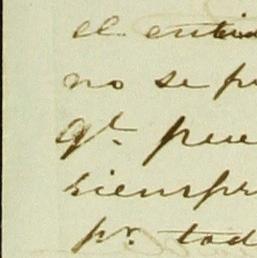 el entid
no se pu
qt. pue
siempr
pr. tod